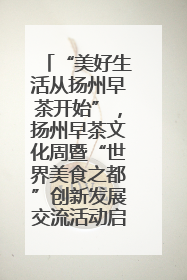 「“美好生
活从扬州早
茶开始”，
扬州早茶文
化周暨“世
界美食之都
”创新发展
交流活动启